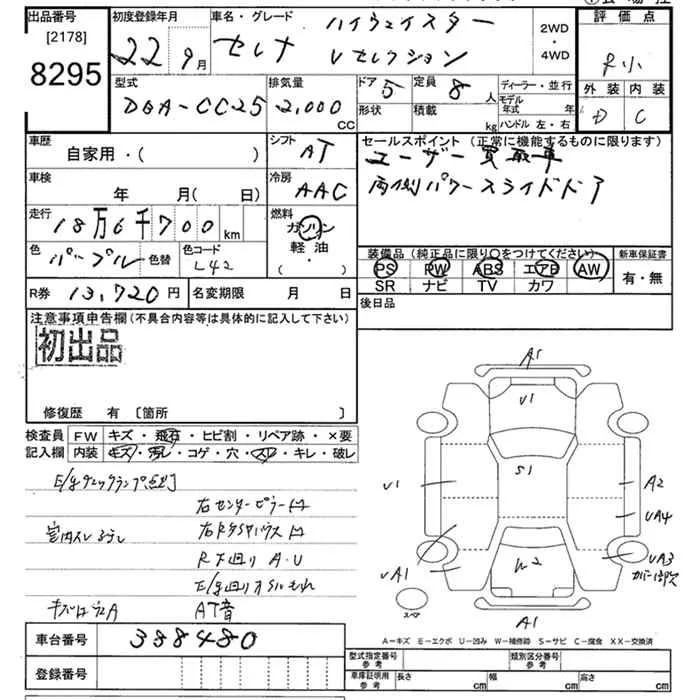 出品番号
[2178]
8295
初度登録年月
22 9月
車名・グレード
ハイウェイスター
セレナ Vセレクション
2WD
・
4WD
評価点
外装 内装
D C
型式
DBA-CC25
排気量
2,000
CC
ドア 5
定員 8 人
形状
積載 kg
ディーラー・並行
モデル年式 年
ハンドル 左・右
車歴
自家用・( )
シフト AT
セールスポイント (正常に機能するものに限ります)
ユーザー買取車
両側パワースライドドア
車検
年 月( 日)
冷房 AAC
走行
18万6千700km
燃料
ガソリン
軽油
( ・ )
色
パープル
色替
色コード
L42
装備品 (純正品に限り○をつけてください)
新車保証書
PS PW ABS エアB AW
SR ナビ TV カワ
有・無
R券 13,720円
名変期限 月 日
後日品
注意事項申告欄 (不具合内容等は具体的に記入して下さい)
初出品
修復歴 有 〔箇所 〕
検査員
記入欄
FW キズ・飛石・ヒビ割・リペア跡・×要
内装 キズ・汚レ・コゲ・穴・スレ・キレ・破レ
E/gチェックランプ点灯
右センターピラー
R下回り A・U
AT音
車台番号 388480
登録番号
A1
V1
S1
U1
A2
UA4
W2
UA1
UA3
スペア
A1
A-キズ E-エクボ U-凹み W-補修跡 S-サビ C-腐食 XX-交換済
型式指定番号
参考
類別区分番号
参考
車庫証明用
参考
長さ cm
幅 cm
高さ cm